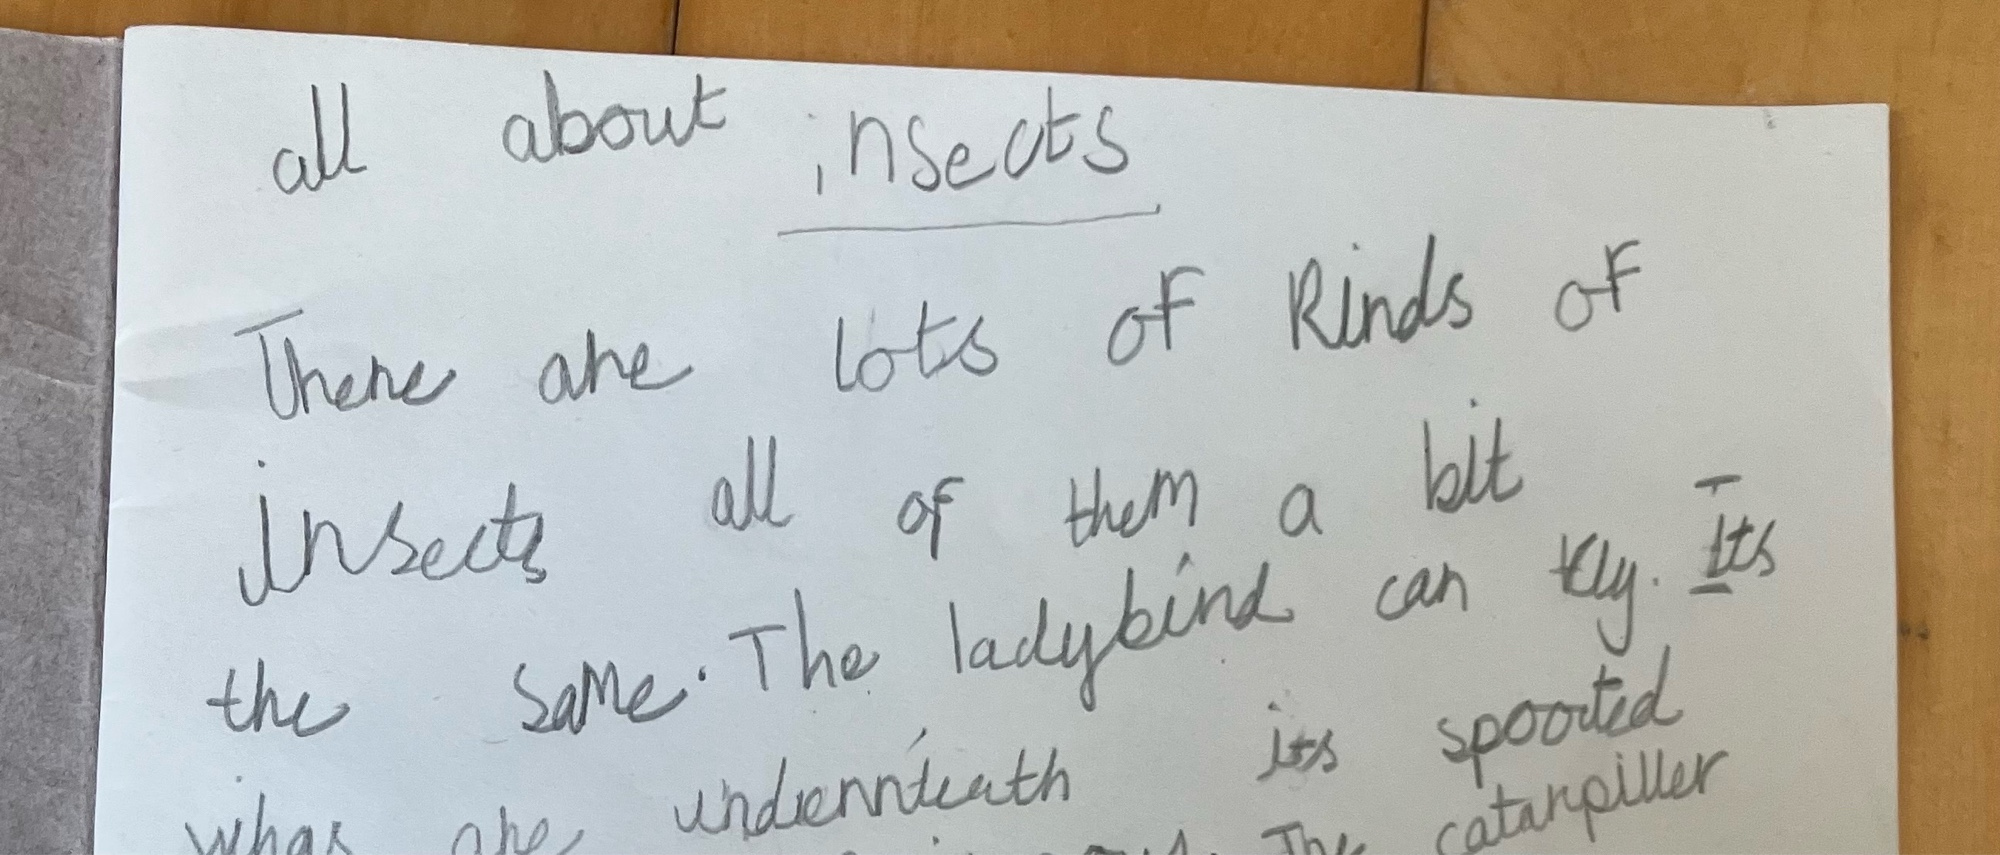 all about insects
There are lots of kinds of
insects all of them a bit
the same. The ladybird can fly. Its
whas are underrnteath its spooted
The catarpiller